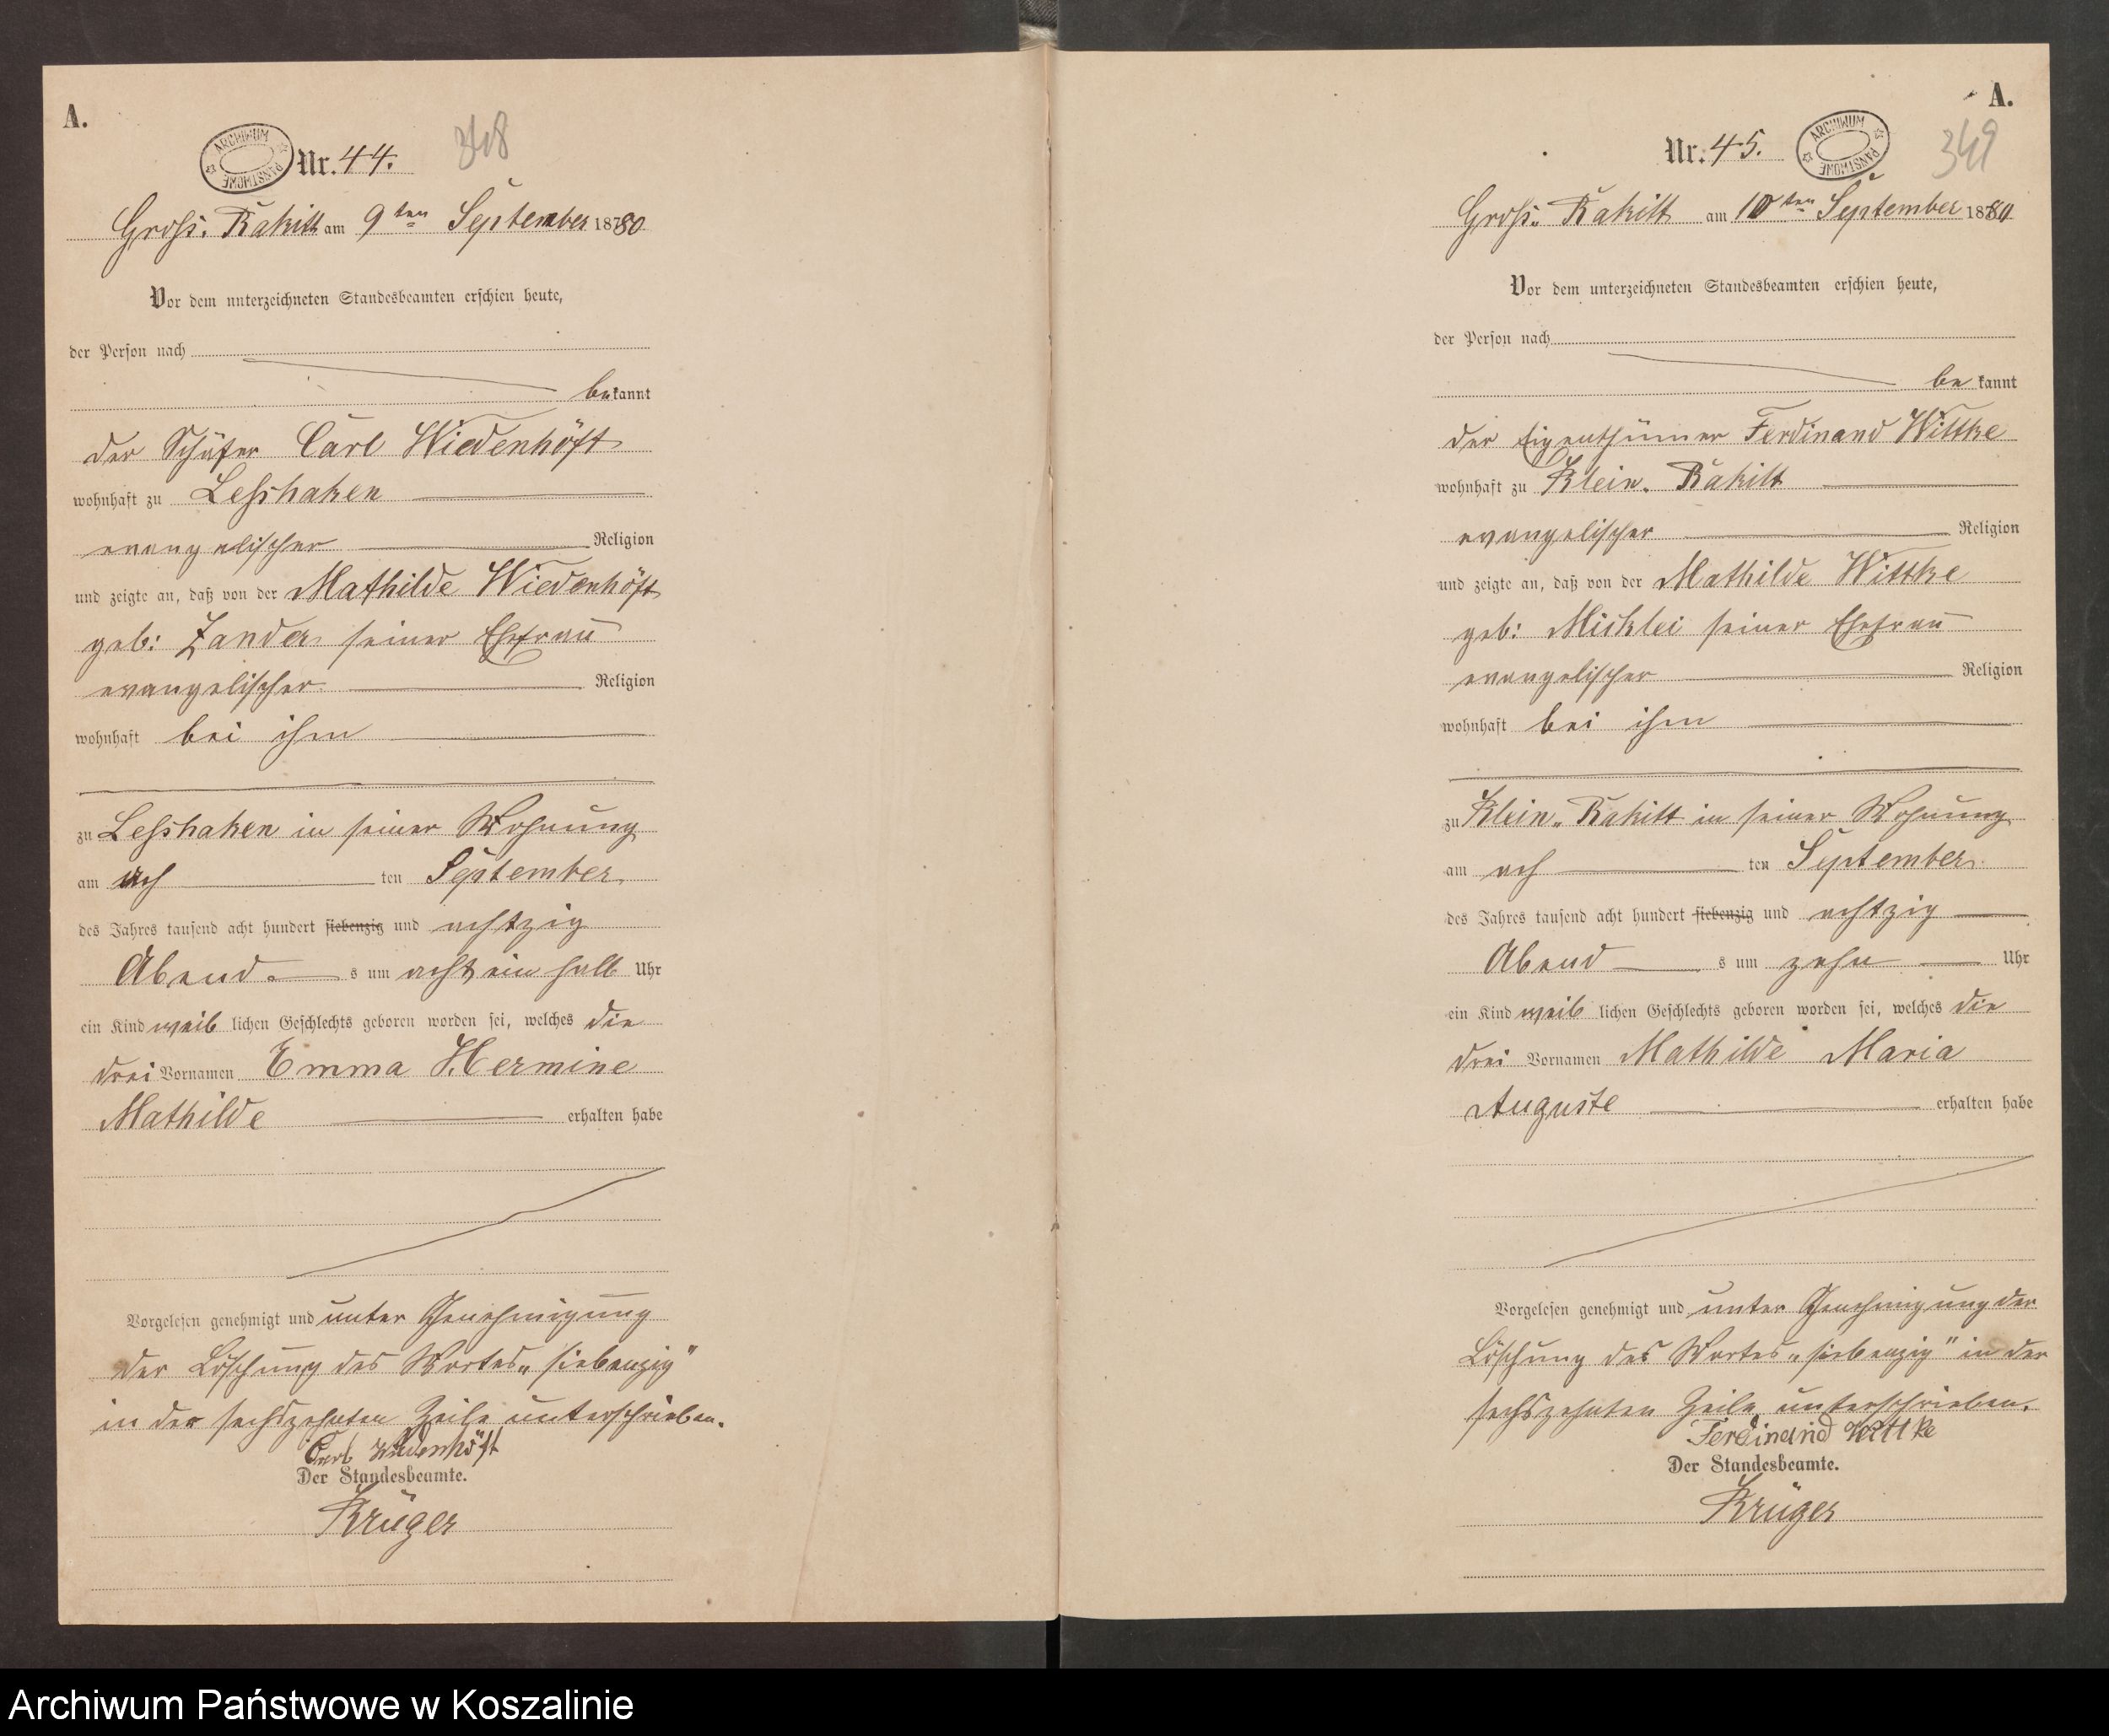 A.
ARCHIWUM PAŃSTWOWE
Nr. 44.
348
Groß. Rakitt am 9ten September 1880
Vor dem unterzeichneten Standesbeamten erschien heute,
der Person nach
bekannt
der Schäfer Carl Wiedenhöft
wohnhaft zu Leßhaken
evangelischer Religion
und zeigte an, daß von der Mathilde Wiedenhöft
geb: Zander seiner Ehefrau
evangelischer Religion
wohnhaft bei ihm
zu Leßhaken in seiner Wohnung
am ach ten September
des Jahres tausend acht hundert siebenzig und achtzig
Abend s um acht ein halb Uhr
ein Kind weib lichen Geschlechts geboren worden sei, welches die
drei Vornamen Emma Hermine
Mathilde erhalten habe
Vorgelesen genehmigt und unter Genehmigung
der Löschung des Wortes „siebenzig"
in der sechszehnten Zeile unterschrieben.
Carl Wiedenhöft
Der Standesbeamte.
Krüger
A.
Nr. 45.
ARCHIWUM PAŃSTWOWE
349
Groß. Rakitt am 10ten September 1880
Vor dem unterzeichneten Standesbeamten erschien heute,
der Person nach
be kannt
der Eigenthümer Ferdinand Wittke
wohnhaft zu Klein. Rakitt
evangelischer Religion
und zeigte an, daß von der Mathilde Wittke
geb: Micklei seiner Ehefrau
evangelischer Religion
wohnhaft bei ihm
zu Klein. Rakitt in seiner Wohnung
am ach ten September
des Jahres tausend acht hundert siebenzig und achtzig
Abend s um zehn Uhr
ein Kind weib lichen Geschlechts geboren worden sei, welches die
drei Vornamen Mathilde Maria
Auguste erhalten habe
Vorgelesen genehmigt und unter Genehmigung der
Löschung des Wortes „siebenzig" in der
sechszehnten Zeile unterschrieben.
Ferdinand Wittke
Der Standesbeamte.
Krüger
Archiwum Państwowe w Koszalinie